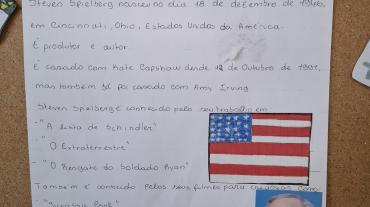 Steven Spielberg nasceu no dia 18 de dezembro de 1946,
em Cincinnati, Ohio, Estados Unidos da América.
É produtor e autor.
É casado com Kate Capshaw desde 12 de Outubro de 1991,
mas também já foi casado com Amy Irving
Steven Spielberg é conhecido pelo seu trabalho em
- "A lista de Schindler"
- "O Extraterrestre"
- "O Resgate do Soldado Ryan"
Também é conhecido pelos seus filmes para crianças como
- "Jurassic Park"